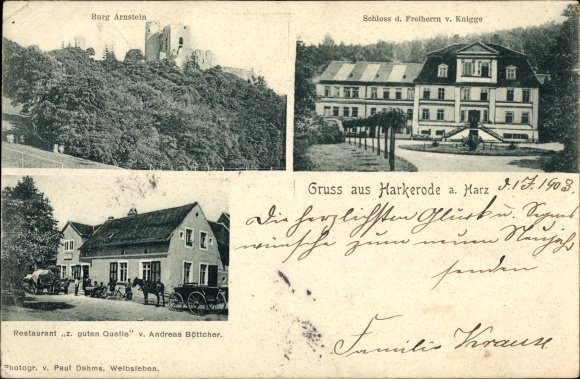 Burg Arnstein
Schloss d. Freiherrn v. Knigge
Gruss aus Harkerode a. Harz
d. 1.I. 1903.
Die herzlichsten Glück u. Segens
wünsche zum neuen Neujahr
senden
Familie Krause
Restaurant „z. guten Quelle" v. Andreas Böttcher.
Photogr. v. Paul Dahms, Welbsleben.